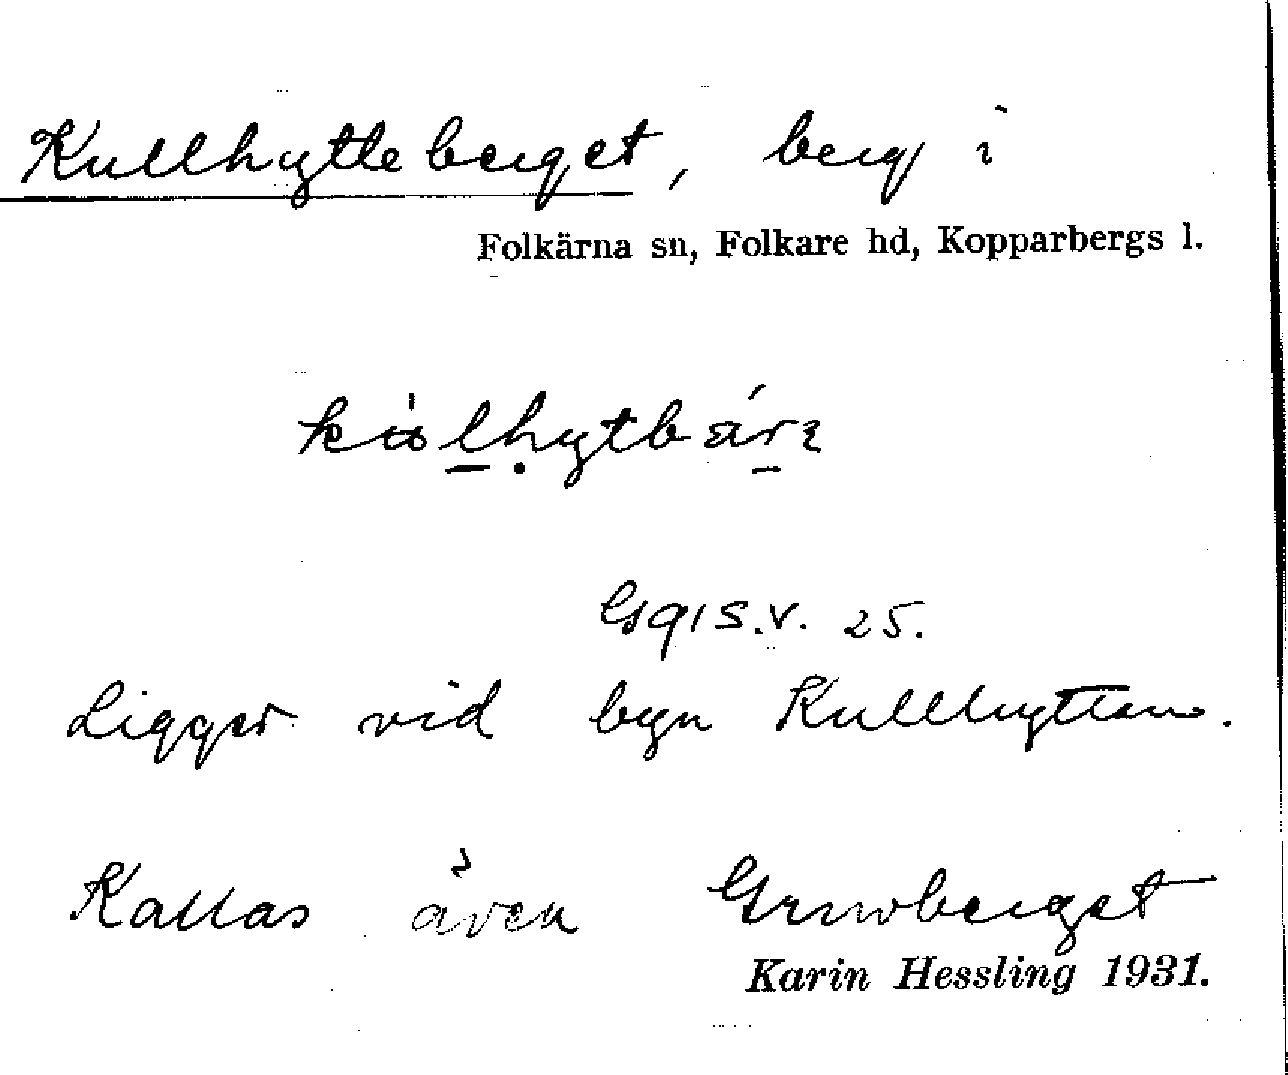 Kullhytteberget, berg i
Folkärna sn, Folkare hd, Kopparbergs l.
25.
Ligger vid byn Kullhyttan.
Kallas även Gruvberget
Karin Hessling 1931.